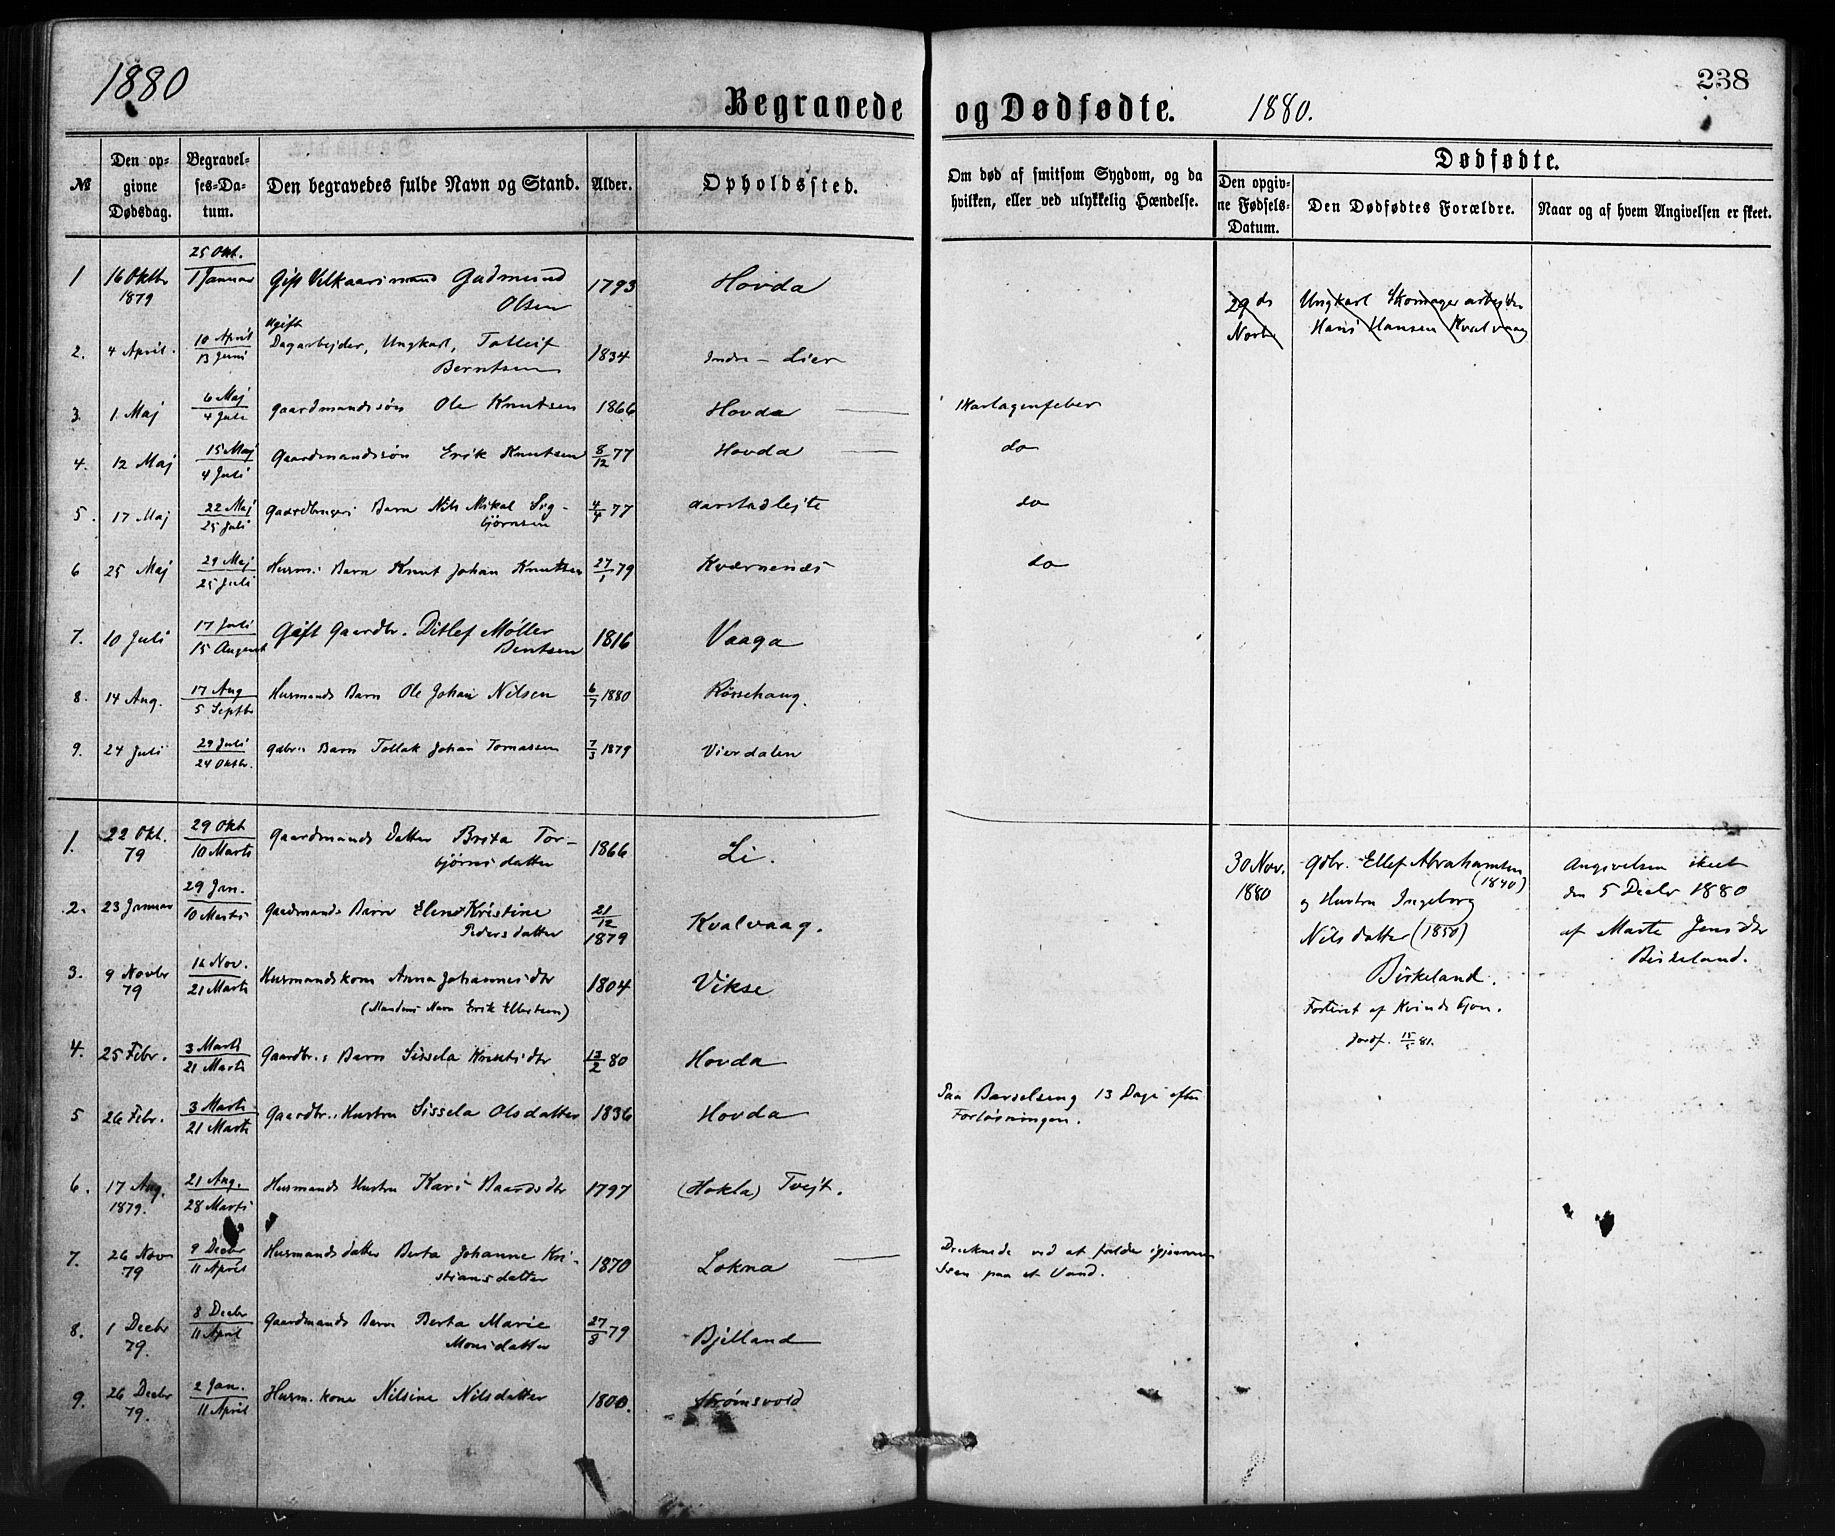 1880
Begravede og Dødfødte. 1880.
238
№
Den opgivne Dødsdag.
Begravelses-Datum.
Den begravedes fulde Navn og Stand.
Alder.
Opholdssted.
Om død af smitsom Sygdom, og da hvilken, eller ved ulykkelig Hændelse.
Dødfødte.
Den opgivne Fødsels-Datum.
Den Dødfødtes Forældre.
Naar og af hvem Angivelsen er skeet.
1 16 Oktbr 1879 25 Okt. 1 Januar Gift Vilkaarsmand Gudmund Olsen 1793 Hovda
29 de Novbr Ungkarl Skomagerarbejder Hans Hansen Kvalvaag
2. 4 April. 10 April 13 Juni Ugift Dagarbejder, Ungkarl, Tolleif Berntsen 1834 Indre-Lier
3. 1. Maj 6 Maj 4 Juli Gaardmandssøn Ole Knutsen 1866 Hovda Skarlagenfeber
4. 12 Maj 15 Maj 4 Juli Gaardmandssøn Erik Knutsen 8/12 77 Hovda do
5. 17 Maj 22 Maj 25 Juli Gaardbrugers Barn Nils Mikal Sigbjørnsen 4/4 77 Aarstadlejte do
6 25 Maj 29 Maj 25 Juli Husm: Barn Knut Johan Knutsen 27/1 79 Kværnenæs do
7. 10 Juli 17 Juli 15 August Gift Gaardbr. Ditlef Møller Bentsen 1816 Vaaga
8. 14 Aug. 17 Aug 5 Septbr Husmands Barn Ole Johan Nilsen 6/7 1880 Røssehaug.
9. 24 Juli 29 Juli 24 Oktbr. Gdbr: Barn Tollak Johan Tomassen 7/3 1879 Vierdalen
1. 22 Okt. 79 29 Okt 10 Marts Gaardmands Datter Brita Torbjørnsdatter 1866 Li.
30 Nov. 1880 Gdbr. Ellef Abrahamsen (1840)
og Hustru Ingeborg
Nilsdatter (1850)
Birkeland.
Fosteret af Kvindekjøn.
Jordf. 15/5 81.
Angivelsen skeet
den 5 Decbr 1880
af Marte Jensdtr
Birkeland.
2. 23 Januar 29 Jan. 10 Marts Gaardmands Barn Elen Kristine Pedersdatter 21/12 1879 Kvalvaag.
3. 9 Novbr 79 16 Nov. 21 Marts Husmandskone Anna Johannesdtr 1804 Vikse
(Mandens Navn Erik Ellertsen)
4. 25 Febr. 3 Marts 21 Marts Gaardbr.s Barn Sissela Knutsdtr 13/2 80 Hovda
5 26 Febr. 3 Marts 21 Marts Gaardbr.s Hustru Sissela Olsdatter 1836 Hovda Paa Barselseng 13 Dage efter Forløsningen.
6. 17 Aug. 1879. 21 Aug. 28 Marts Husmands Hustru Kari Baardsdtr 1797 (Hokla) Tvejt.
7. 26 Novbr 79 9 Decbr 11 April Husmandsdatter Berta Johanne Kristiansdatter 1870 Lokna Druknede ved at falde igjennem Isen paa et Vand.
8. 1 Decbr 79. 8 Decbr 11 April Gaardmands Barn Berta Marie Monsdatter 27/8 79 Bjelland
9. 26 Decbr 79. 2 Jan. 11 April Husm. kone Nilsine Nilsdatter 1800. Strømsvold